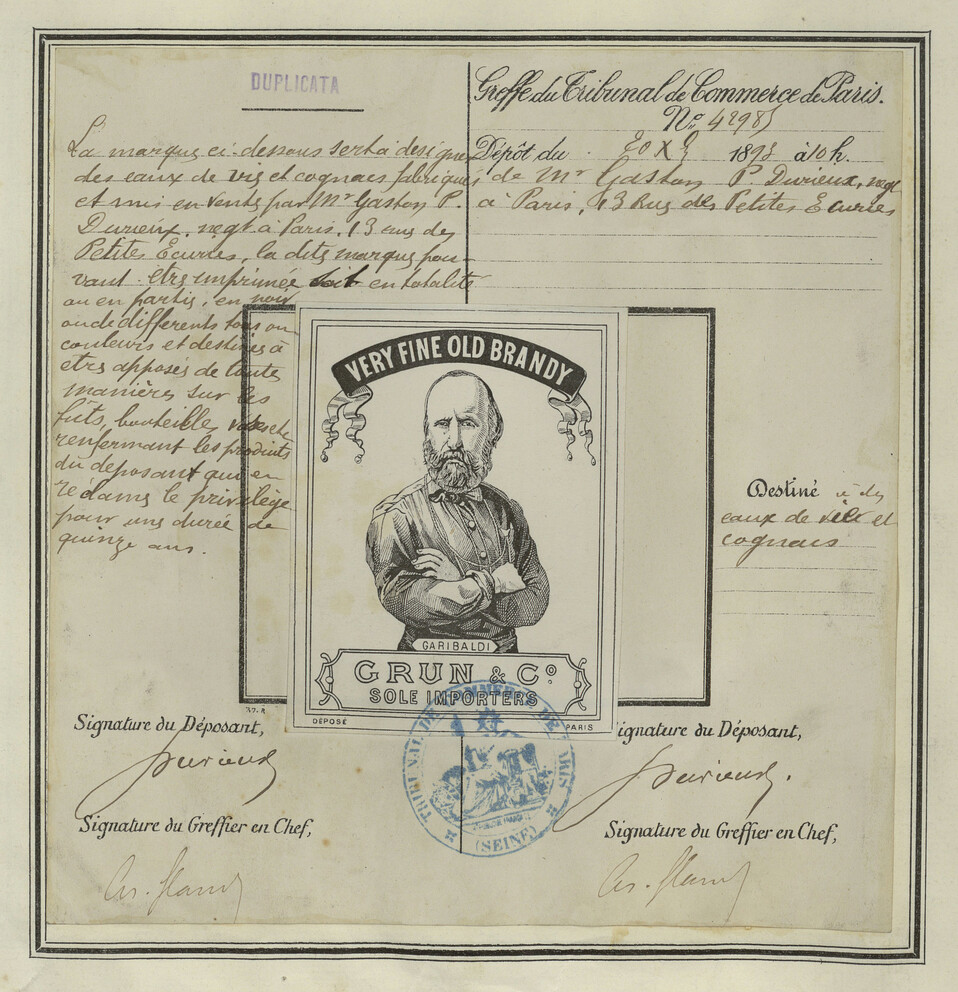 DUPLICATA
La marque ci-dessous sert à désigner
des eaux de vie et cognacs fabriqués
et mis en vente par Mr Gaston P.
Durieux, negt à Paris, 13 rue des
Petites Ecuries, la dite marque pou-
vant être imprimée soit en totalité
ou en partie, en noir
ou de différents tons ou
couleurs et destinée à
être apposée de toutes
manières sur les
fûts, bouteilles,
renfermant les produits
du déposant qui en
réclame le privilège
pour une durée de
quinze ans.
Greffe du Tribunal de Commerce de Paris.
No. 4298
Dépôt du 20 X 1893 à 10 h.
de Mr Gaston P Durieux, negt
à Paris, 13 Rue des Petites Ecuries
VERY FINE OLD BRANDY
GARIBALDI
GRUN & Co
SOLE IMPORTERS
DÉPOSÉ
PARIS
Destiné à des
eaux de vie et
cognacs
TRIBUNAL DE COMMERCE DE PARIS
(SEINE)
Signature du Déposant,
Durieux
Signature du Greffier en Chef,
ignature du Déposant,
Durieux.
Signature du Greffier en Chef,